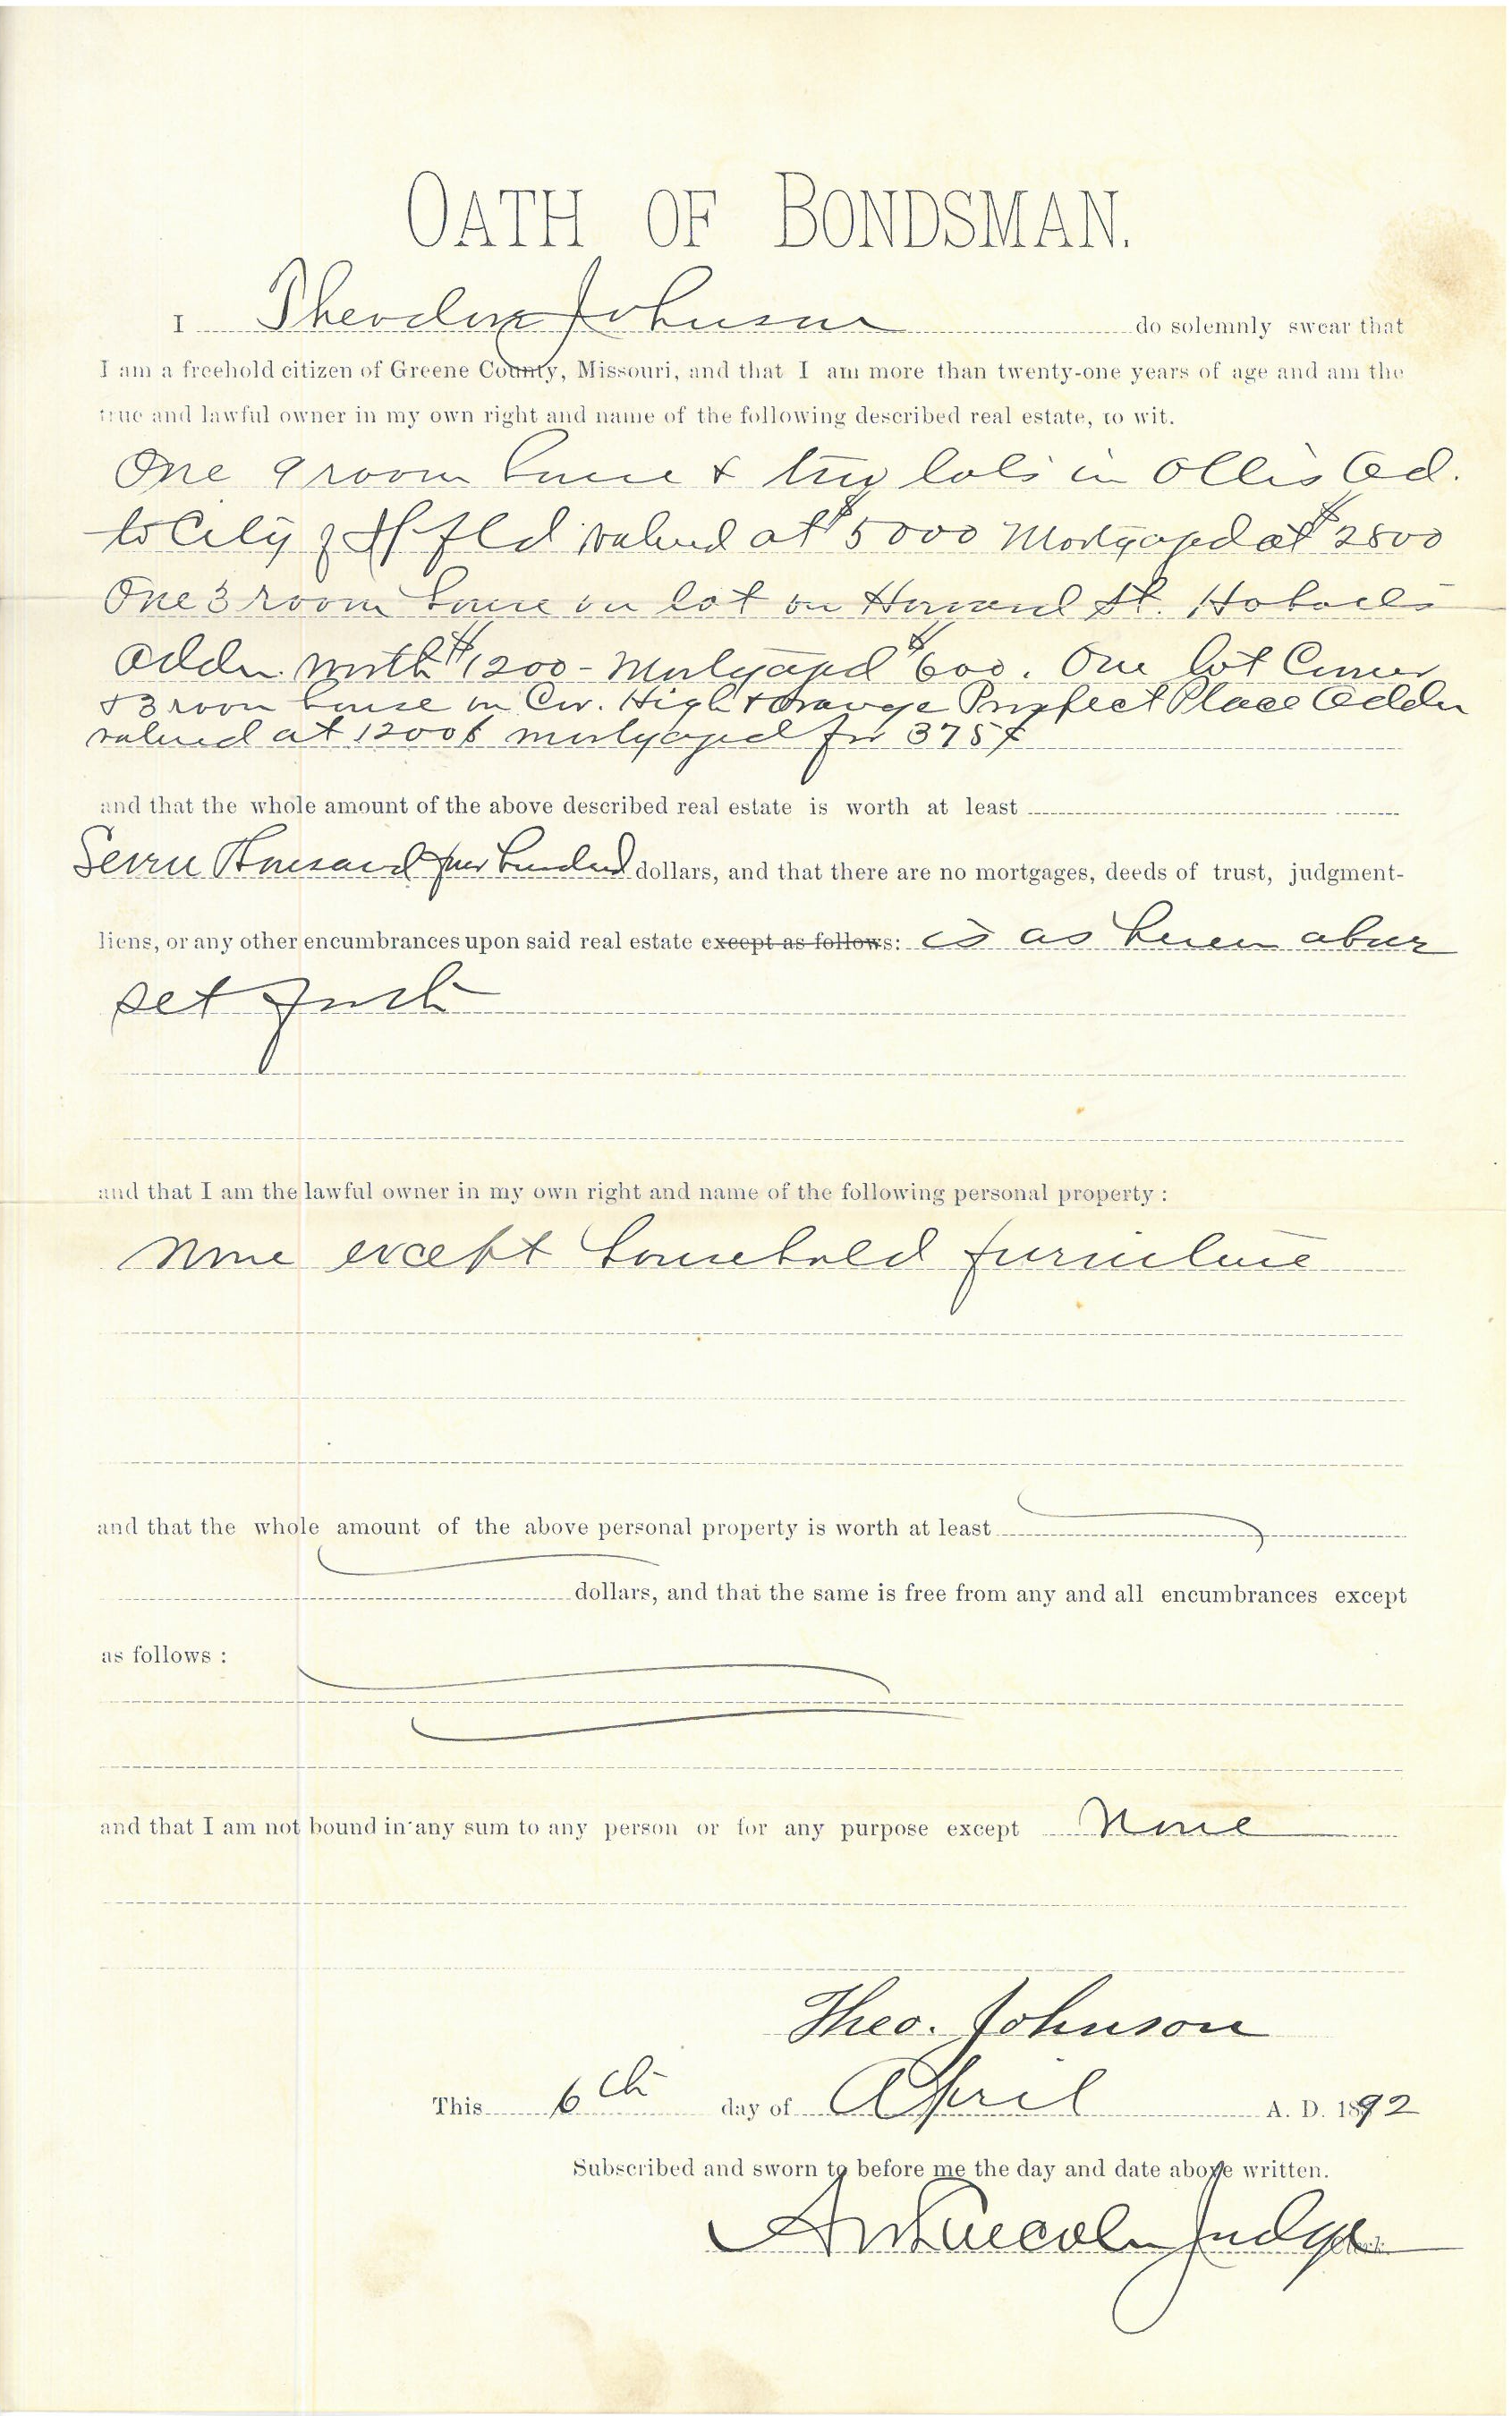 OATH OF BONDSMAN.
I Theodore Johnson do solemnly swear that
I am a freehold citizen of Greene County, Missouri, and that I am more than twenty-one years of age and am the
true and lawful owner in my own right and name of the following described real estate, to wit.
One 9 room house & two lots in Ollis Ad.
to City of Spfld valued at $5000 Mortgaged at $2800
One 3 room house on lot on Howard St.
Addn. worth $1200 - Mortgaged $600. One lot Corner
& 3 room house on Cor. High & Orange Prospect Place Addn
valued at 1200$ mortgaged for 375$
and that the whole amount of the above described real estate is worth at least
Seven Thousand four hundred dollars, and that there are no mortgages, deeds of trust, judgment-
liens, or any other encumbrances upon said real estate except as follows: is as herein above
set forth
and that I am the lawful owner in my own right and name of the following personal property :
None except household furniture
and that the whole amount of the above personal property is worth at least
dollars, and that the same is free from any and all encumbrances except
as follows :
and that I am not bound in any sum to any person or for any purpose except None
Theo. Johnson
This 6th day of April A. D. 1892
Subscribed and sworn to before me the day and date above written.
Lincoln Judge
Clerk.